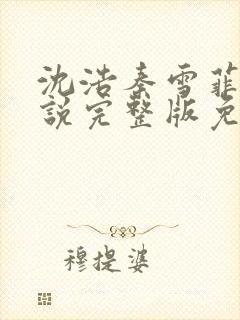 沈浩秦雪菲
说完整版免
穆提婆